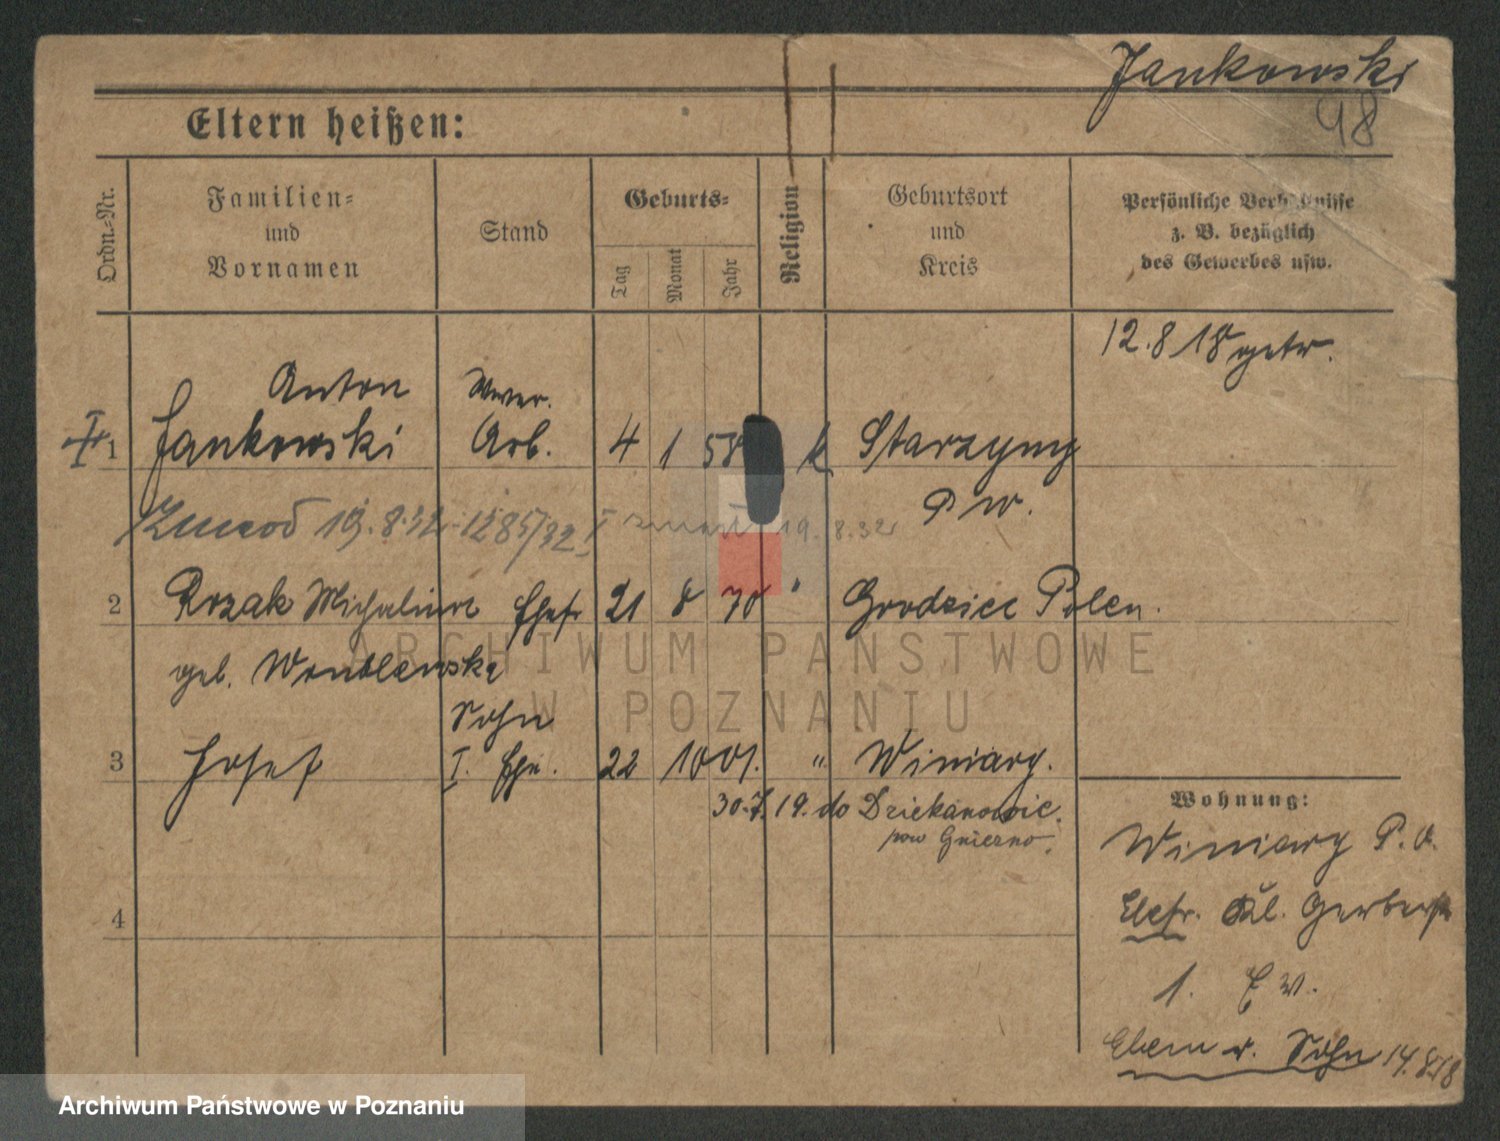 Jankowski
98
Eltern heißen:
Ordn.-Nr.
Familien-
und
Vornamen
Stand
Geburts-
Tag
Monat
Jahr
Religion
Geburtsort
und
Kreis
Persönliche Verhältnisse
z. B. bezüglich
des Gewerbes usw.
12.8 18 getr.
Anton
1 Jankowski Arb. 4 1 58 k Starzyny
P W.
19.8.32 1285/32 19.8.32
2 Rozak Michalina Ehefr 21 8 70 " Grodziec Polen.
geb. Wroblewska
Sohn
3 Josef I. Ehe. 22 10 01. " Winiary.
30.7.19. do Dziekanowic.
pow Gniezno.
4
Wohnung:
Winiary P. O.
Ehefr. Kl. Gerberstr
1. E W.
Ehem u. Sohn 14.8.18
ARCHIWUM PAŃSTWOWE
W POZNANIU
Archiwum Państwowe w Poznaniu